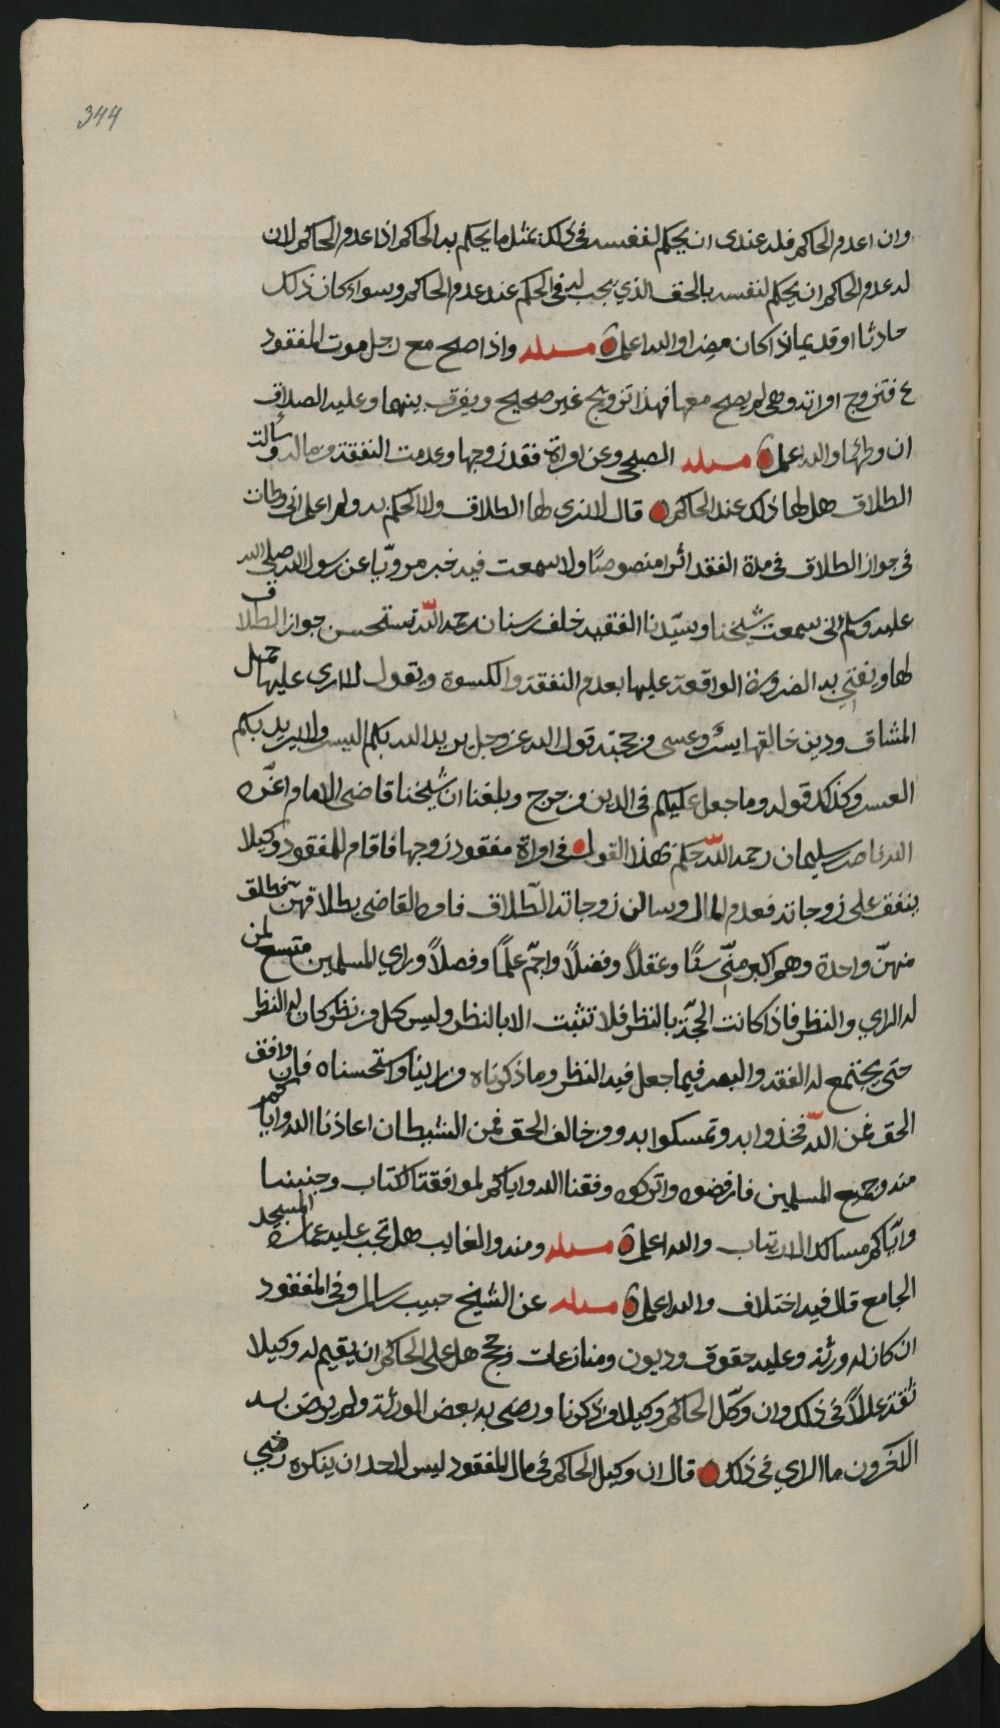 344
وان اعدم الحاكم فله عندى ان يحكم لنفسه فى ذلك بمثل ما يحكم به الحاكم اذا عدم الحاكم لان
له عدم الحاكم ان يحكم لنفسه بالحق الذي يجب له فى الحكم عند عدم الحاكم وسواء كان ذلك
حادثا او قديما اذا كان مضرا والله اعلم مسئله واذا صح مع رجل موت المفقود
فتزوج امراته وهى لم يصح معها فهذا تزويج غير صحيح ويفرق بينهما وعليه الصداق
ان وطئها والله اعلم مسئله الصبحى وعن امراة فقد زوجها وعدمت النفقة من ماله وسألت
الطلاق هل لها ذلك عند الحاكم قال لا ندرى لها الطلاق ولا الحكم به ولم اعلم انى وطات
فى جواز الطلاق فى مدة الفقد اثرا منصوصا ولا سمعت فيه خبر مرويا عن رسول الله صلى الله
عليه وسلم انى سمعت شيخنا وسيدنا الفقيه خلف بن سنان رحمه الله تستحسن جواز الطلاق
لها ويفتي به الضرورة الواقعة عليها بعدم النفقة والكسوة ويقول لا ارى عليها حمل
المشاق ودين خالقها يسر وعسى من حجته قول الله عز وجل يريد الله بكم اليسر ولا يريد بكم
العسر وكذلك قوله وما جعل عليكم فى الدين من حرج وبلغنا ان شيخنا قاضى الامام اعزه
الله ناصر بن سليمان رحمه الله حكم بهذا القول فى امراة مفقود زوجها فاقام للمفقود وكيلا
ينفق على زوجاته فعدم المال وسالن زوجاته الطلاق فامر القاضي بطلاقهن فطلق
منهن واحدة وهو اكبر منى سنا وعقلا وفضلا واجم علما وفصلا وراي المسلمين متسع لمن
له الراي والنظر فاذا كانت الحجة بالنظر فلا تثبت الا بالنظر وليس كل من نظر كان له النظر
حتى يجتمع له الفقه والبصر فيما جعل فيه النظر وما ذكرناه من راينا واستحسناه فان وافق
الحق فمن الله فخذوا به وتمسكوا به ومن خالف الحق فمن الشيطان اعاذنا الله واياكم
منه وجميع المسلمين فارفضوه واتركوه وفقنا الله واياكم لموافقة الكتاب وجنبنا
واياكم مسالك الارتياب والله اعلم مسئله ومنه والغايب هل تجب عليه عمارة المسجد
الجامع قال فيه اختلاف والله اعلم مسئله عن الشيخ حبيب بن سالم وفى المفقود
ان كان له ورثة وعليه حقوق وديون ومنازعات وحج هل على الحاكم ان يقيم له وكيلا
ثقة عدلا فى ذلك وان وكل الحاكم وكيلا من ذكرنا ورضى به بعض الورثة ولم يرض به
الاخرون ما الراي فى ذلك قال ان وكيل الحاكم فى مال المفقود ليس لاحد ان ينكره رضي